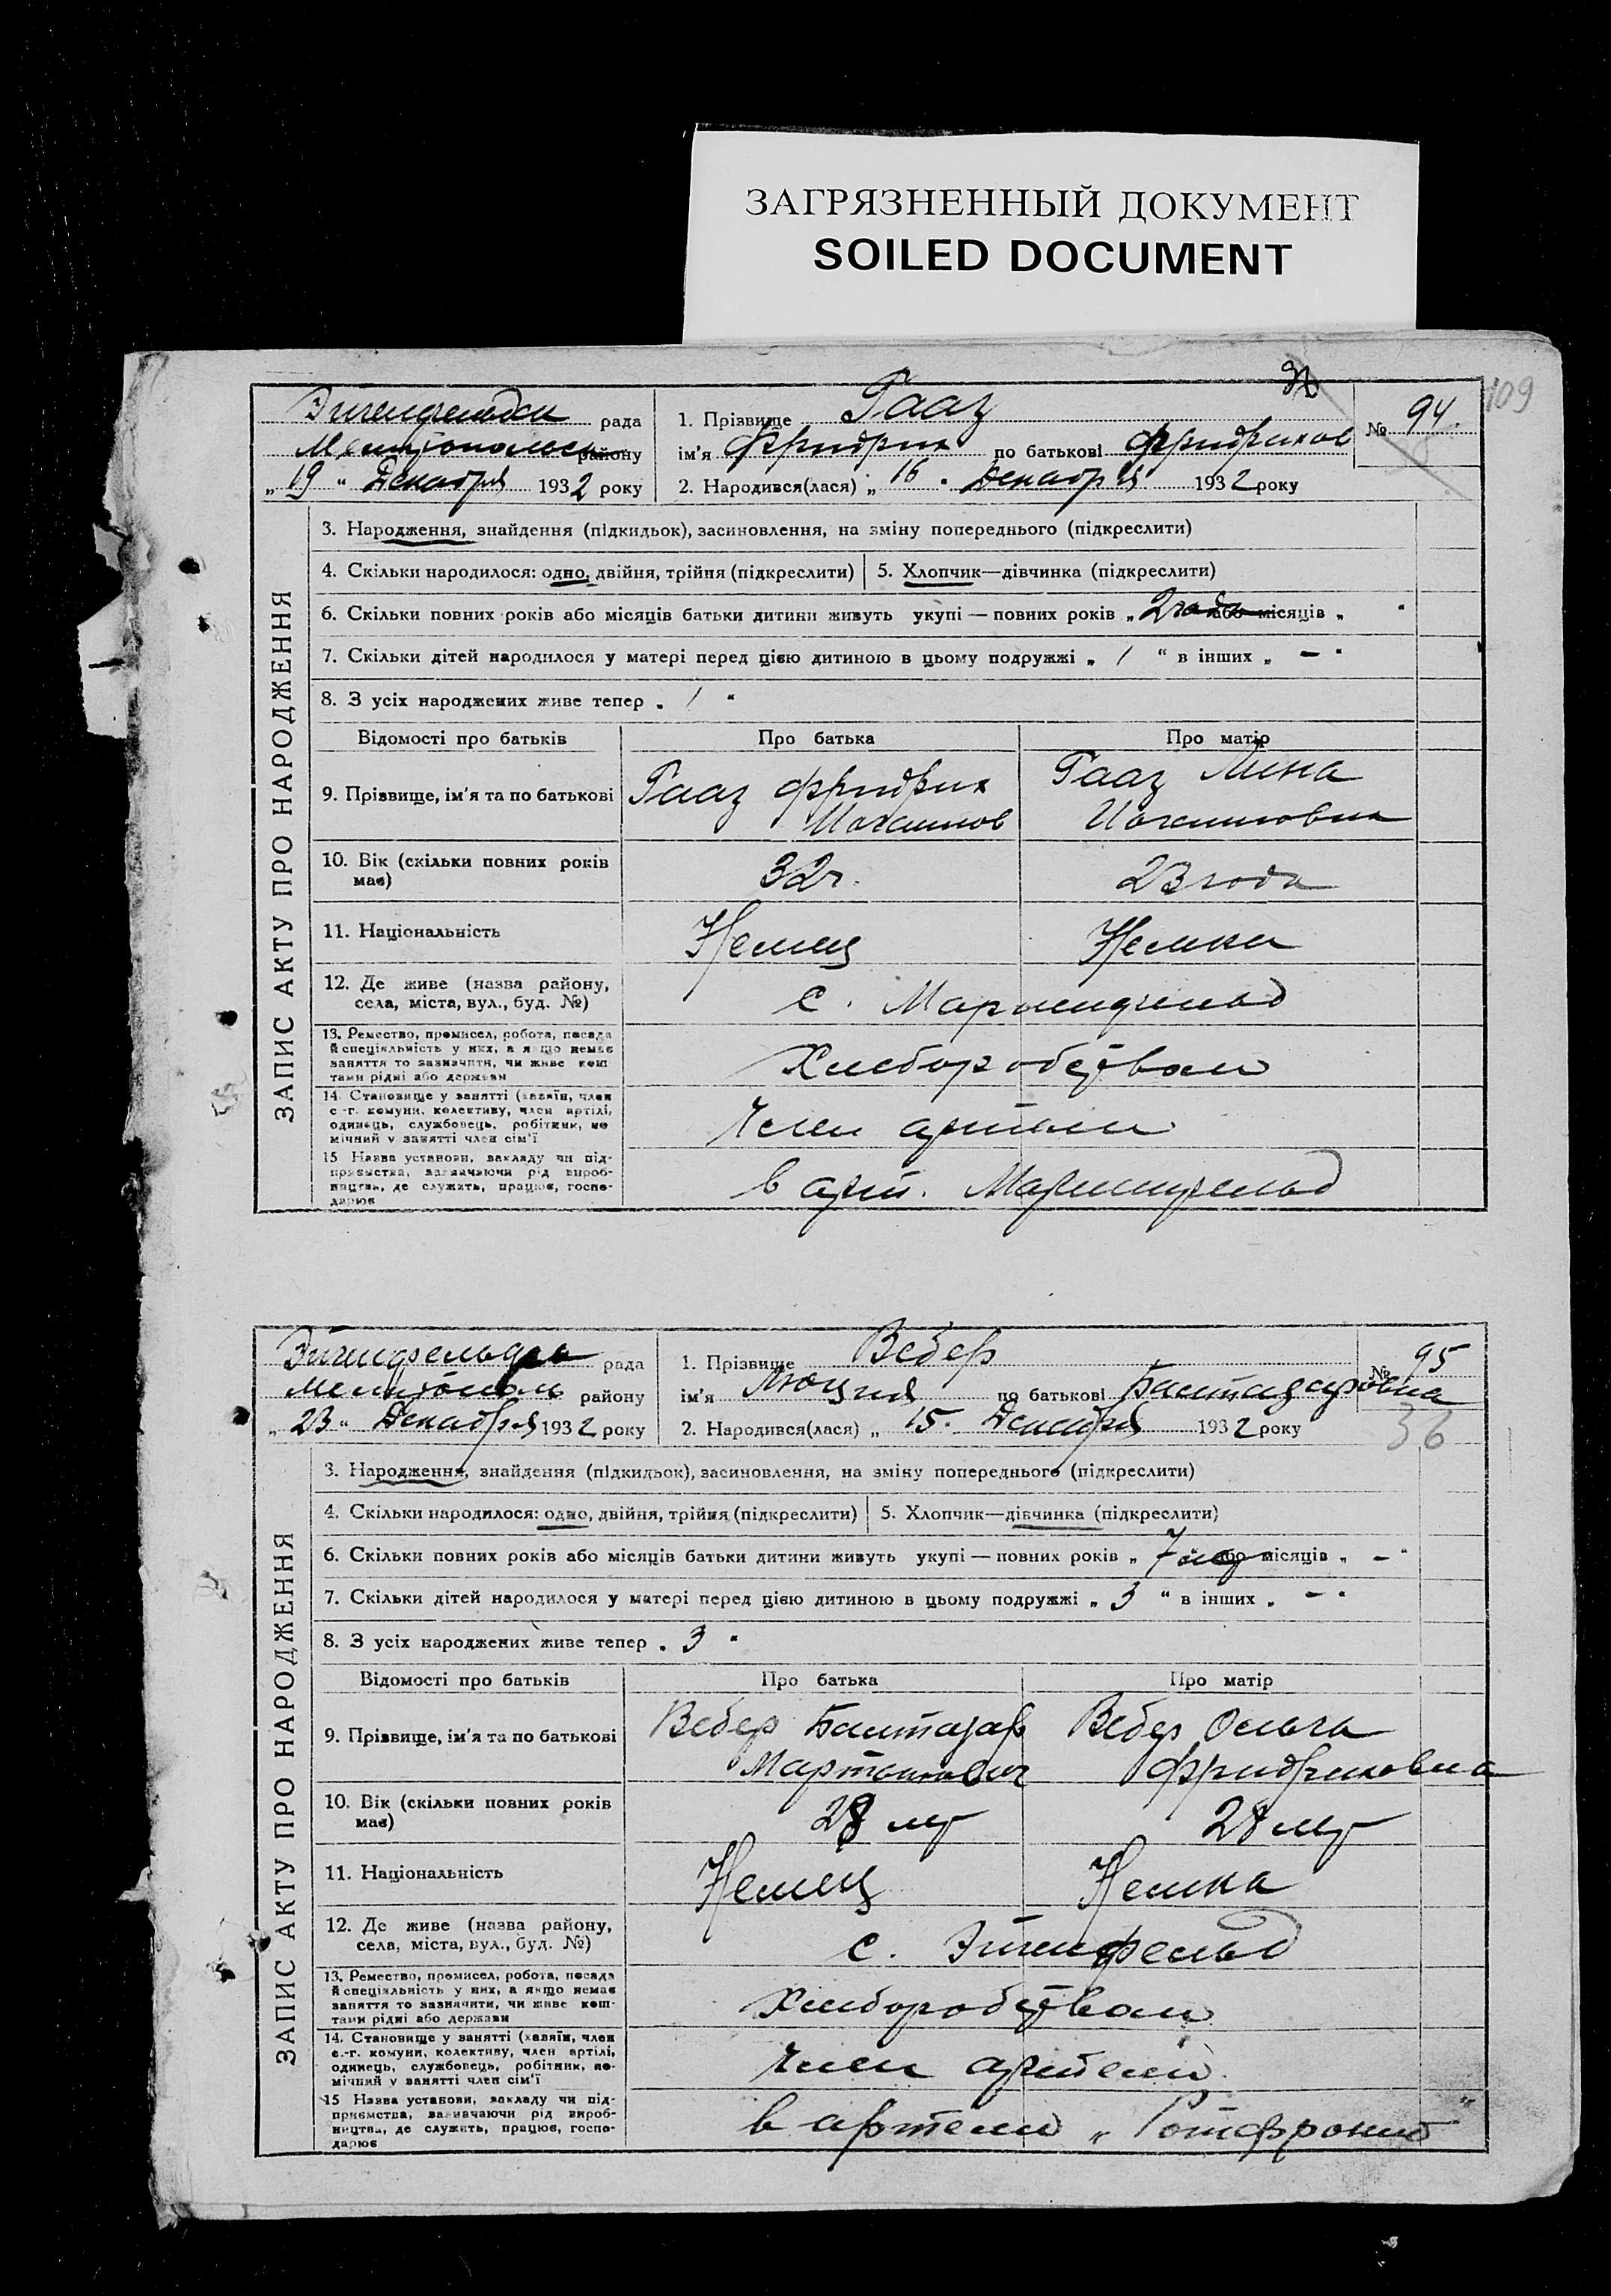 ЗАГРЯЗНЕННЫЙ ДОКУМЕНТ
SOILED DOCUMENT
109
рада
району
„19 “ Декабря 1932 року
1. Прізвище Гааз
ім'я Фридрих по батькові Фридрихов
2. Народився(лася) „ 16 . Декабря 1932 року
№ 94.
ЗАПИС АКТУ ПРО НАРОДЖЕННЯ
3. Народження, знайдення (підкидьок), засиновлення, на зміну попереднього (підкреслити)
4. Скільки народилося: одно, двійня, трійня (підкреслити)
5. Хлопчик—дівчинка (підкреслити)
6. Скільки повних років або місяців батьки дитини живуть укупі — повних років „ 2 года або місяців „ “
7. Скільки дітей народилося у матері перед цією дитиною в цьому подружжі „ 1 “ в інших „ — “
8. З усіх народжених живе тепер „ 1 “
Відомості про батьків Про батька Про матір
9. Прізвище, ім'я та по батькові Гааз Фридрих Гааз Мина
10. Вік (скільки повних років має) 32 г. 23 года
11. Національність Немец Немка
12. Де живе (назва району,
села, міста, вул., буд. №) с. Мариенфельд
13. Ремество, промисел, робота, посада
й спеціяльність у них, а якщо немає
заняття то зазначити, чи живе кош-
тами рідні або держави
Хлеборобством
14. Становище у занятті (хазяїн, член
с.-г. комуни, колективу, член артілі,
одинець, службовець, робітник, по-
мічний у занятті член сім'ї
Член артели
15 Назва установи, закладу чи під-
приємства, зазначаючи рід вироб-
ництва, де служить, працює, госпо-
дарює
в арт. Мариенфельд
рада
району
„ 23 “ Декабря 1932 року
1. Прізвище Вебер
ім'я Люция по батькові Балтазаровна
2. Народився(лася) „ 15. Декабря 1932 року
№ 95
36
ЗАПИС АКТУ ПРО НАРОДЖЕННЯ
3. Народження, знайдення (підкидьок), засиновлення, на зміну попереднього (підкреслити)
4. Скільки народилося: одно, двійня, трійня (підкреслити)
5. Хлопчик—дівчинка (підкреслити)
6. Скільки повних років або місяців батьки дитини живуть укупі — повних років „ 7 лет або місяців „ — “
7. Скільки дітей народилося у матері перед цією дитиною в цьому подружжі „ 3 “ в інших „ — “
8. З усіх народжених живе тепер „ 3 “
Відомості про батьків Про батька Про матір
9. Прізвище, ім'я та по батькові Вебер Балтазар Вебер Ольга
Мартинович Фридриховна
10. Вік (скільки повних років має) 28 лет 28 лет
11. Національність Немец Немка
12. Де живе (назва району,
села, міста, вул., буд. №) с. Эйгенфельд
13. Ремество, промисел, робота, посада
й спеціяльність у них, а якщо немає
заняття то зазначити, чи живе кош-
тами рідні або держави
Хлеборобством
14. Становище у занятті (хазяїн, член
с.-г. комуни, колективу, член артілі,
одинець, службовець, робітник, по-
мічний у занятті член сім'ї
член артели
15 Назва установи, закладу чи під-
приємства, зазначаючи рід вироб-
ництва, де служить, працює, госпо-
дарює
в артели „ Ротфронт “